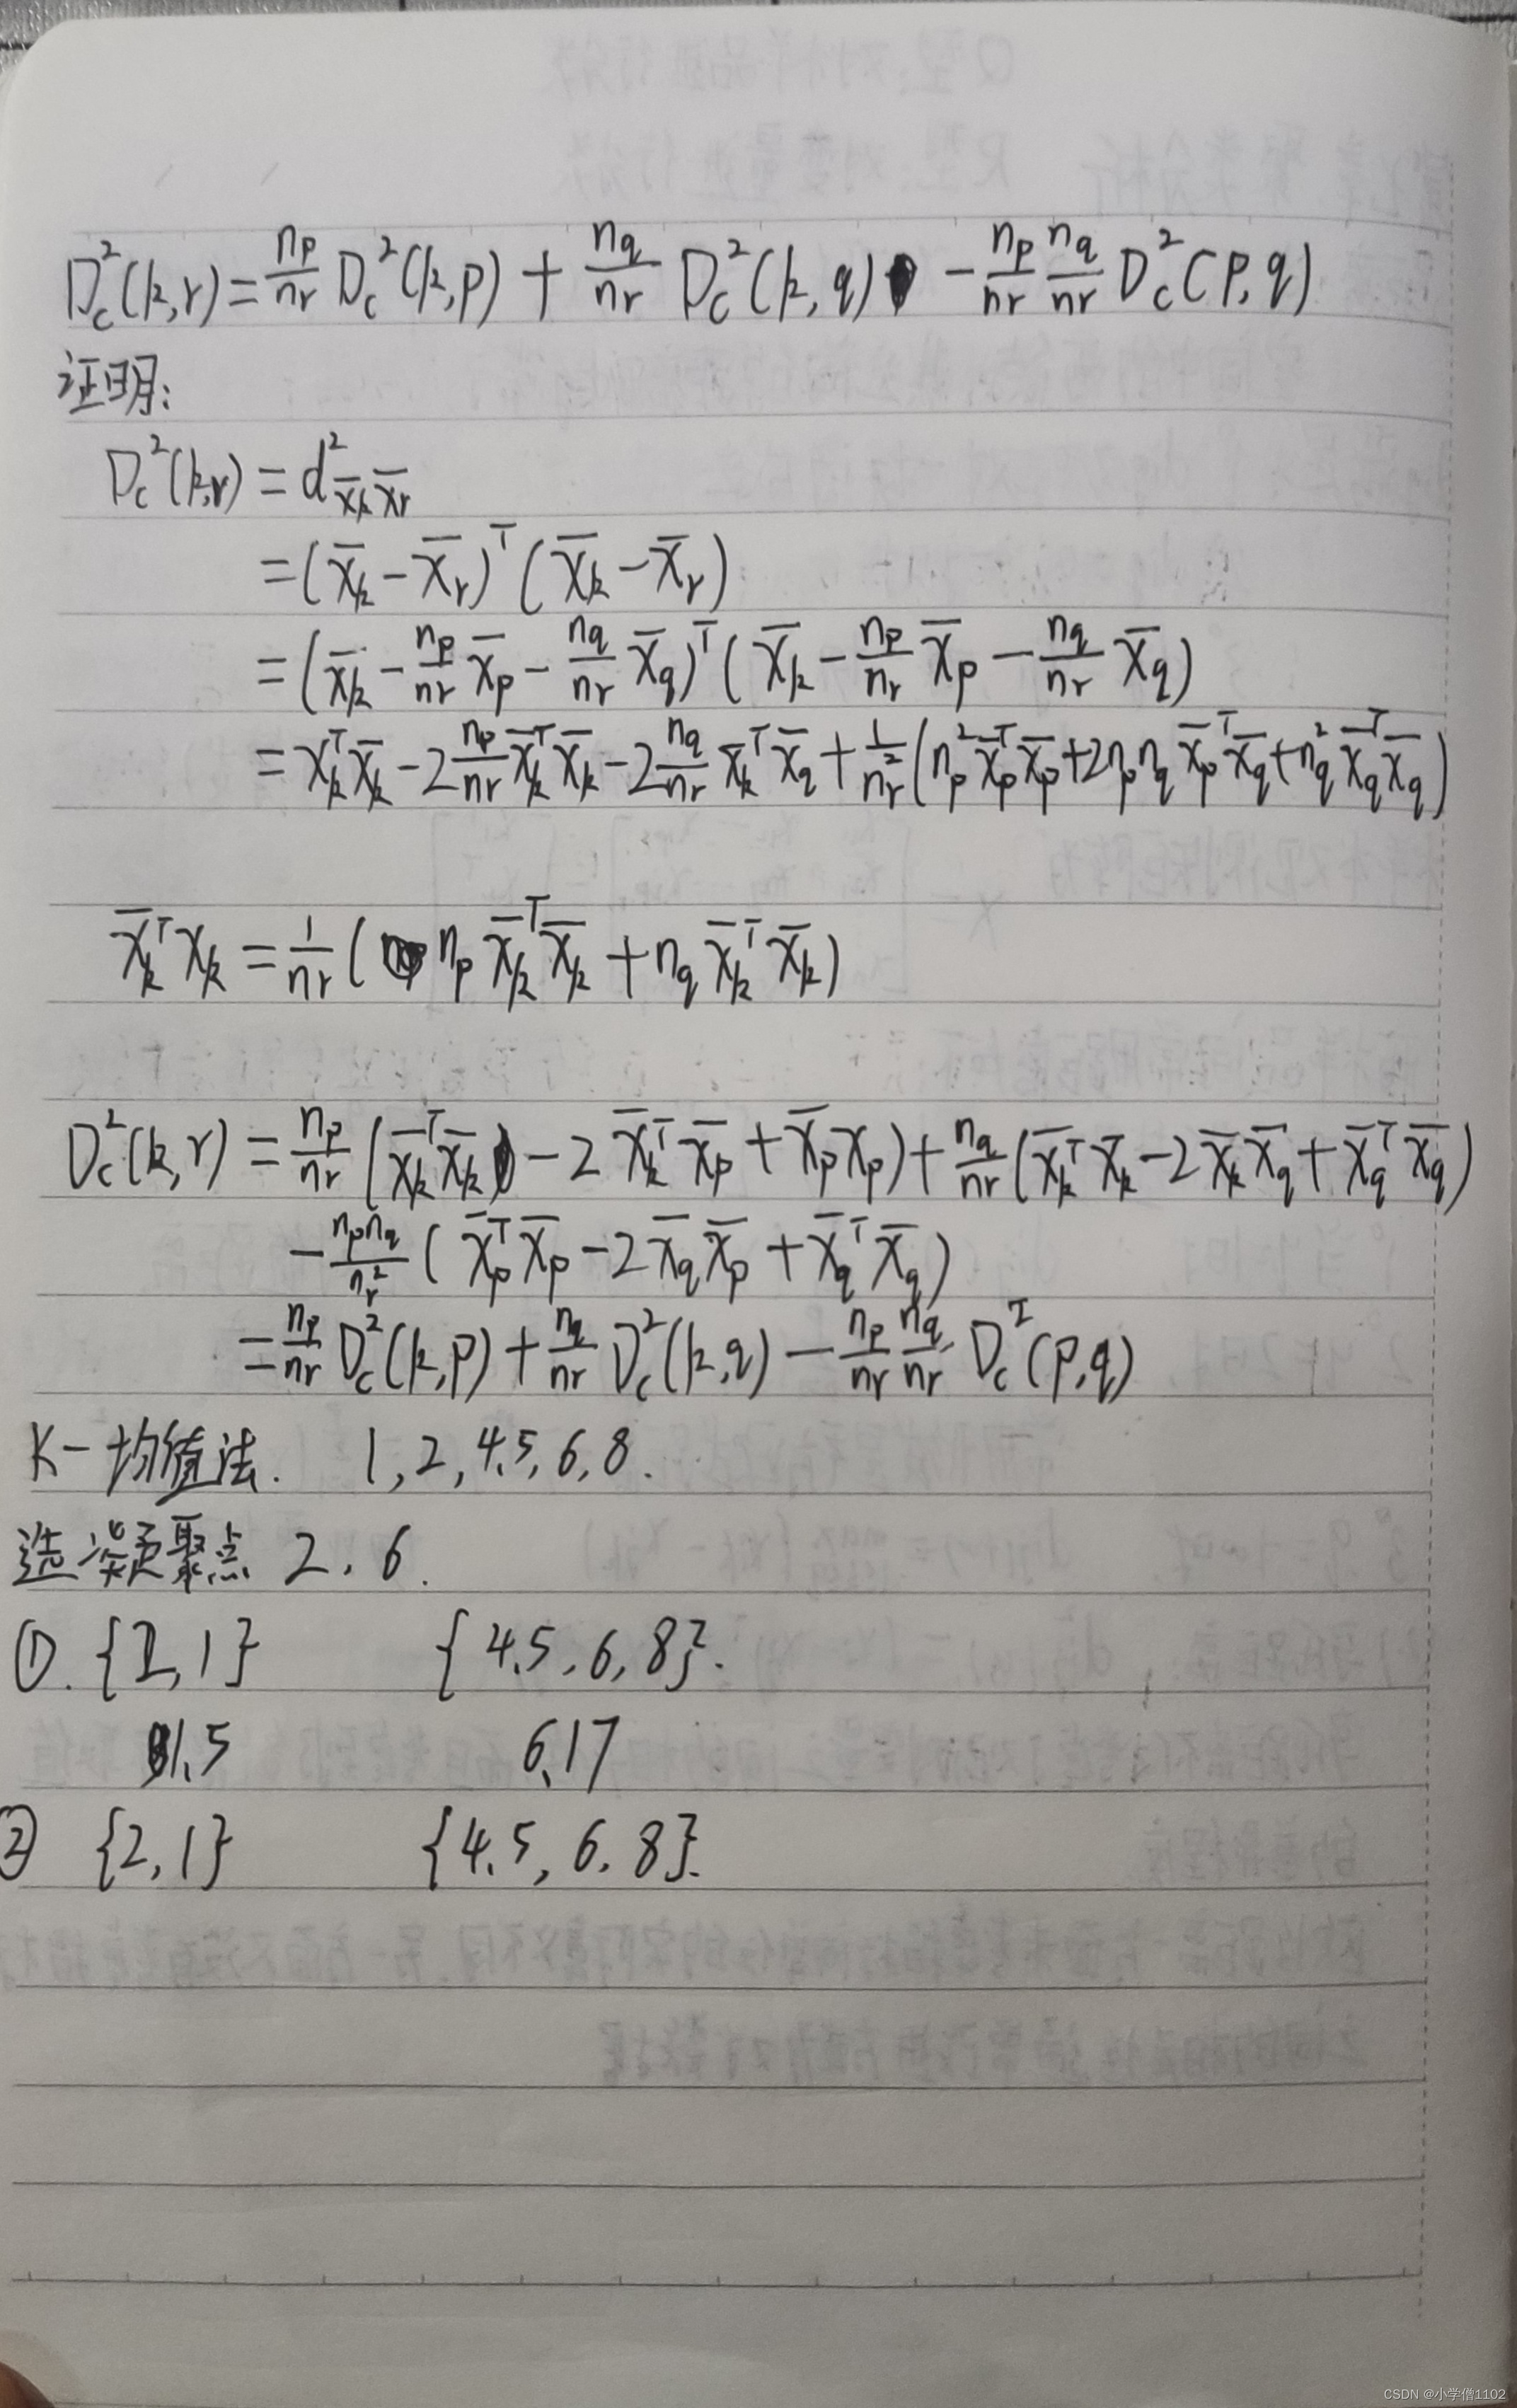 D_c²(k,r) = n_p/n_r D_c²(k,p) + n_q/n_r D_c²(k,q) - n_p/n_r n_q/n_r D_c²(p,q)
证明:
D_c²(k,r) = d²_{x̄_k x̄_r}
= (x̄_k - x̄_r)ᵀ(x̄_k - x̄_r)
= (x̄_k - n_p/n_r x̄_p - n_q/n_r x̄_q)ᵀ(x̄_k - n_p/n_r x̄_p - n_q/n_r x̄_q)
= x_kᵀx̄_k - 2 n_p/n_r x̄_kᵀx̄_k - 2 n_q/n_r x̄_kᵀx̄_q + 1/n_r²(n_p² x̄_pᵀx̄_p + 2n_p n_q x̄_pᵀx̄_q + n_q² x̄_qᵀx̄_q)
x̄_kᵀx_k = 1/n_r(n_p x̄_kᵀx̄_k + n_q x̄_kᵀx̄_k)
D_c²(k,r) = n_p/n_r(x̄_kᵀx̄_k - 2x̄_kᵀx̄_p + x̄_p x_p) + n_q/n_r(x̄_kᵀx̄_k - 2x̄_k x̄_q + x̄_qᵀx̄_q)
- n_p n_q/n_r²(x̄_pᵀx̄_p - 2x̄_q x̄_p + x̄_qᵀx̄_q)
= n_p/n_r D_c²(k,p) + n_q/n_r D_c²(k,q) - n_p/n_r n_q/n_r D_c²(p,q)
K-均值法. 1,2,4.5,6,8.
选凝聚点 2,6.
①. {2,1} {4.5,6,8}.
1.5 6.17
② {2,1} {4.5,6,8}.
CSDN @小学僧1102